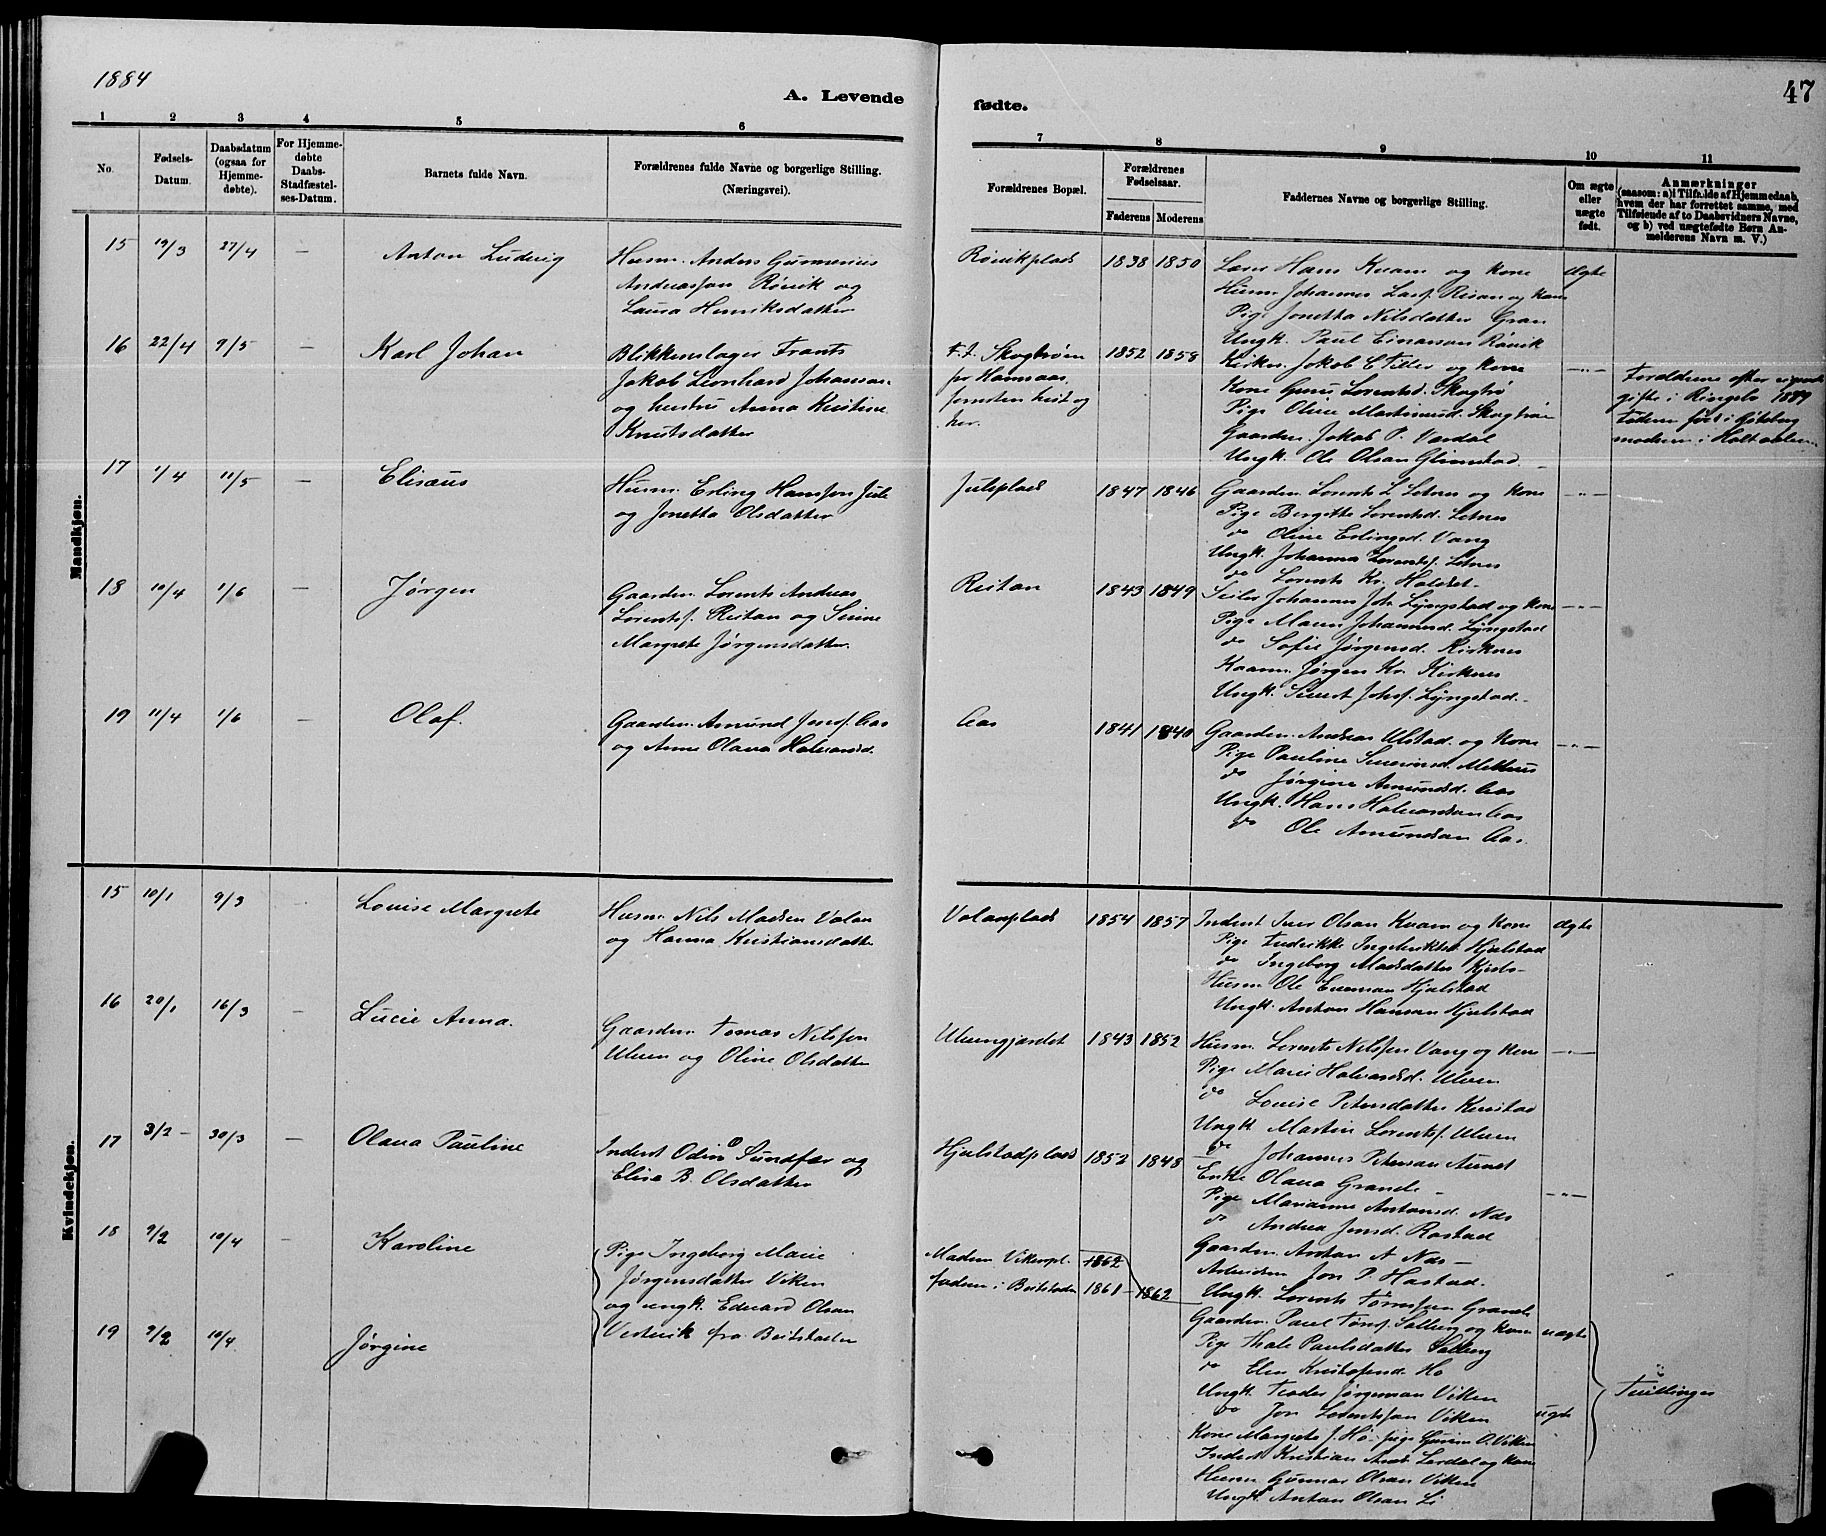 1884
A. Levende
fødte.
47
1 2 3 4 5 6
7 8 9 10 11
No.
Fødsels-
Datum.
Daabsdatum
(ogsaa for
Hjemme-
døbte).
For Hjemme-
døbte
Daabs-
Stadfæstel-
ses-Datum.
Barnets fulde Navn.
Forældrenes fulde Navne og borgerlige Stilling.
(Næringsvei).
Forældrenes Bopæl.
Forældrenes
Fødselsaar.
Faderens Moderens
Faddernes Navne og borgerlige Stilling.
Om ægte
eller
uægte
født.
Anmærkninger
(saasom: a) i Tilfælde af Hjemmedaab,
hvem der har forrettet samme, med
Tilføiende af to Daabsvidners Navne,
og b) ved uægtefødte Børn An-
melderens Navn m. V.)
Mandkjøn.
15 19/3 27/4 — Anton Ludvig
Husm. Anders Gunnerius
Andreassen Røvik og
Laura Henriksdatter
Røvikplads 1838 1850
Hans Kvam og Kone
Husm. Johannes Larss. Risan og Kone
Pige Jonetta Nilsdatter Gran
Ungk. Paul Einarson Røvik
Ægte
16 22/4 9/5 — Karl Johan
Blikkenslager Frants
Jakob Leonhard Johanson
og hustru Anna Kristine
Knutsdatter
f. t. Skogtrøen
1852 1858
Kirkes. Jakob E Tiller og Kone
Kone Lorentsd. Skogtrø
Pige Oline Martinusd. Skogtrøe
Gaardm. Jakob P. Værdal
Ungk. Ole Olsen Glimstad
—"—
Forældrene efter
gifte i Ringebo
Faderen født i Gøteborg
moderen i Holtaalen
17 1/4 11/5 — Elisæus
Husm. Erling Hansson Jule
og Jonetta Olsdatter
Juleplads 1847 1846
Gaardm. Lorents L Letnes og Kone
Pige Bergitte Lorentsd. Letnes
do Oline Erlingsd. Vang
Ungk. Johannes Lorentss. Letnes
do Lorents Kr. Holdset
—"—
18 10/4 1/6 — Jørgen
Gaardm. Lorents Andreas
Lorentss. Ristan og
Margrete Jørgensdatter.
Ristan 1843 1849
Johannes Joh. Lyngstad og Kone
Pige Maren Johannesd. Lyngstad
do Sofie Jørgensd. Kirknes
Kaarm. Jørgen Kr. Kirknes
Ungk. Sivert Johs. Lyngstad
—"—
19 11/4 1/6 — Olaf.
Gaardm. Amund Jonss. Aas
og Anne Olava Halvorsd.
Aas 1841 1840
Gaardm. Andreas Ulstad og Kone
Pige Pauline
do Jørgine Amundsd. Aas
Ungk. Hans Halvorsen Aas
do Ole Amundsen Aas
—"—
Kvindekjøn.
15 10/1 9/3 Louise Margrete
Husm. Nils Madsen Volan
og Hanna Kristiansdatter
Volanplads 1854 1857
Inderst Iver Olsen Kvam og Kone
Pige Fredrikke Ingebriktsd. Hjulstad
do Ingeborg Madsdatter
Husm. Ole Hjulstad
Ungk. Anton Hansen Hjulstad
Ægte
16 20/1 16/3 — Lucie Anna.
Gaardm. Tomas Nilssen
Ulven og Oline Olsdatter
1843 1852
Husm. Lorents Nilssen Vang og Kone
Pige Marie Halvorsd. Ulven
do Louise Petersdatter
Ungk. Martin Lorentss. Ulven
do Johannes Petersen
—"—
17 3/2 — 30/3 — Olava Pauline
Inderst Odin Sundfær og
Elisa B. Olsdatter
Hjulstadplads 1852 1848
Enke Olava Grande
Pige Marianne Antonsd. Næs
do Andrea Jensd. Rostad
Gaardm. Anton A Næs
Arbeidsm. Jon P. Hastad.
Ungk. Lorents Grande
—"—
18 9/2 10/4 — Karoline
19 9/2 10/4 Jørgine
Pige Ingeborg Marie
Jørgensdatter Viken
og ungk. Edvard Olsen
Vestvik fra Beitstaden
Moderen Vikenpl. 1862
faderen i Beitstaden 1861 — 1862
Gaardm. Paul Tønss. Salberg og Kone
Pige Thale Paulsdatter Salberg
do Elen Kristofersd. Ho
Ungk. Teoder Jørgensen Viken
do Jon Lorentssen Viken
Kone Margrete J. Ho pige O. Viken
Inderst Kristian Lerdal og Kone
Husm. Gunnar Olsen Viken
Ungk Anton Olsen Li
uægte
uægte
Tvillinger